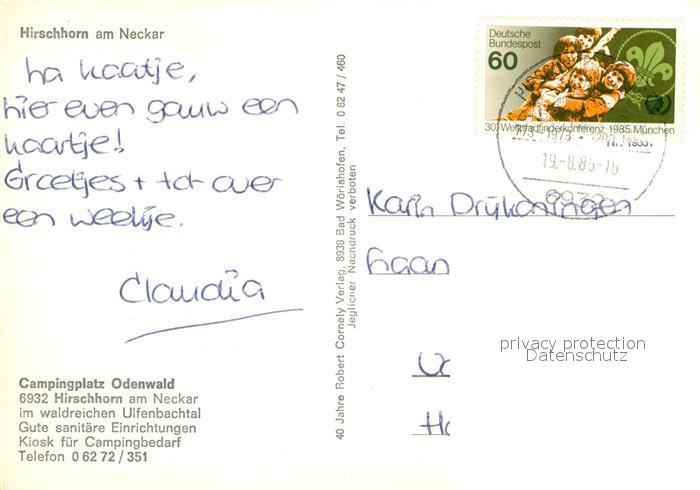 Hirschhorn am Neckar
ha kaatje,
hier even gauw een
kaartje!
Groetjes + tot over
een weekje.
Claudia
Campingplatz Odenwald
6932 Hirschhorn am Neckar
im waldreichen Ulfenbachtal
Gute sanitäre Einrichtungen
Kiosk für Campingbedarf
Telefon 0 62 72 / 351
40 Jahre Robert Cornely Verlag, 8939 Bad Wörishofen, Tel. 0 82 47 / 460
Jeglicher Nachdruck verboten
Deutsche
Bundespost
60
30. Weltpfadfinderkonferenz 1985 München
19.-8.85-16
6932
Karin Drijkoningen
privacy protection
Datenschutz